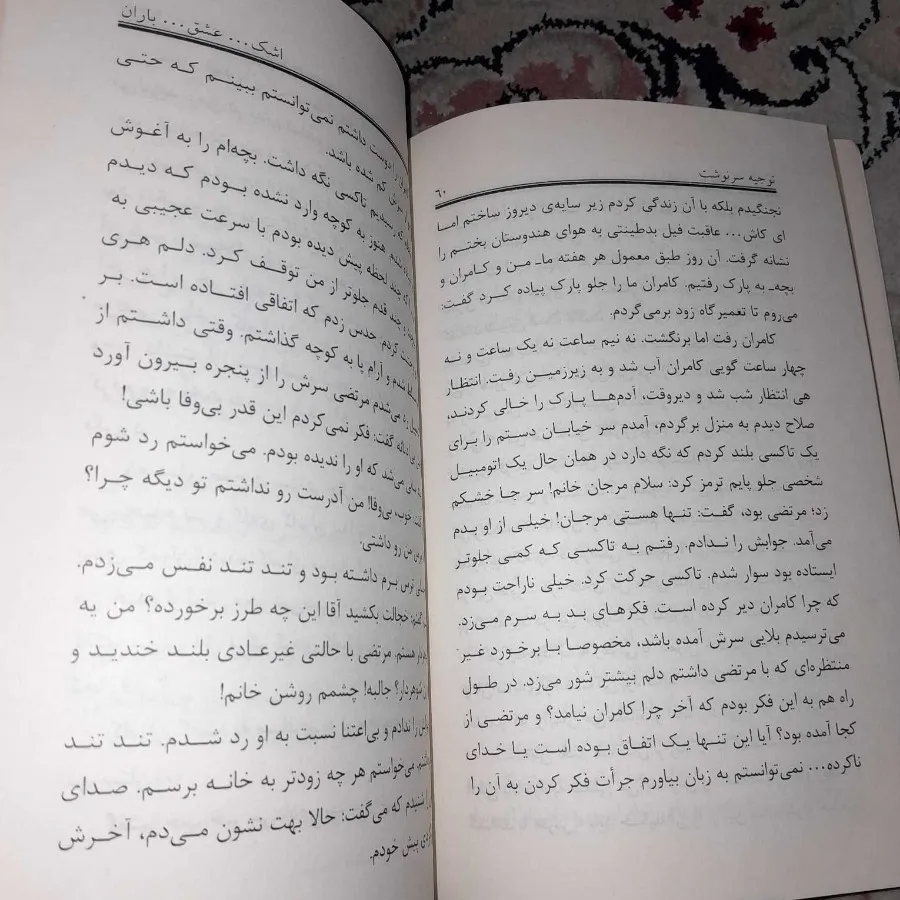 توجیه سرنوشت
۶۰
نجنگیدم بلکه با آن زندگی کردم زیر سایه‌ی دیروز ساختم اما
ای کاش... عاقبت فیل بدطینتی به هوای هندوستان بختم را
نشانه گرفت. آن روز طبق معمول هر هفته ماـ من و کامران و
بچه‌ـ به پارک رفتیم. کامران ما را جلو پارک پیاده کرد گفت:
می‌روم تا تعمیرگاه زود برمی‌گردم.
کامران رفت اما برنگشت. نه نیم ساعت نه یک ساعت و نه
چهار ساعت گویی کامران آب شد و به زیرزمین رفت. انتظار
هی انتظار شب شد و دیروقت، آدم‌ها پارک را خالی کردند،
صلاح دیدم به منزل برگردم، آمدم سر خیابان دستم را برای
یک تاکسی بلند کردم که نگه دارد در همان حال یک اتومبیل
شخصی جلو پایم ترمز کرد: سلام مرجان خانم! سر جا خشکم
زد؛ مرتضی بود، گفت: تنها هستی مرجان! خیلی از او بدم
می‌آمد. جوابش را ندادم. رفتم به تاکسی که کمی جلوتر
ایستاده بود سوار شدم. تاکسی حرکت کرد. خیلی ناراحت بودم
که چرا کامران دیر کرده است. فکرهای بد به سرم می‌زد.
می‌ترسیدم بلایی سرش آمده باشد، مخصوصا با برخورد غیر
منتظره‌ای که با مرتضی داشتم دلم بیشتر شور می‌زد. در طول
راه هم به این فکر بودم که آخر چرا کامران نیامد؟ و مرتضی از
کجا آمده بود؟ آیا این تنها یک اتفاق بوده است یا خدای
ناکرده... نمی‌توانستم به زبان بیاورم جرأت فکر کردن به آن را
اشک... عشق... باران
دوست داشتم نمی‌توانستم ببینم که حتی
سرش کم شده باشد.
رسیدیم تاکسی نگه داشت. بچه‌ام را به آغوش
هنوز به کوچه وارد نشده بودم که دیدم
که چند لحظه پیش دیده بودم با سرعت عجیبی به
و چند قدم جلوتر از من توقف کرد. دلم هری
کردم. حدس زدم که اتفاقی افتاده است. بر
شدم و آرام پا به کوچه گذاشتم. وقتی داشتم از
رد می‌شدم مرتضی سرش را از پنجره بیرون آورد
گفت: فکر نمی‌کردم این قدر بی‌وفا باشی!
می‌شد که او را ندیده بودم. می‌خواستم رد شوم
خوب، بی‌وفا! من آدرست رو نداشتم تو دیگه چرا؟
من رو داشتی.
ترس برم داشته بود و تند تند نفس می‌زدم.
خجالت بکشید آقا این چه طرز برخورده؟ من یه
هستم. مرتضی با حالتی غیرعادی بلند خندید و
شوهردار؟ جالبه! چشمم روشن خانم!
را ندادم و بی‌اعتنا نسبت به او رد شدم. تند تند
می‌خواستم هر چه زودتر به خانه برسم. صدای
شنیدم که می‌گفت: حالا بهت نشون می‌دم، آخرش
پیش خودم.